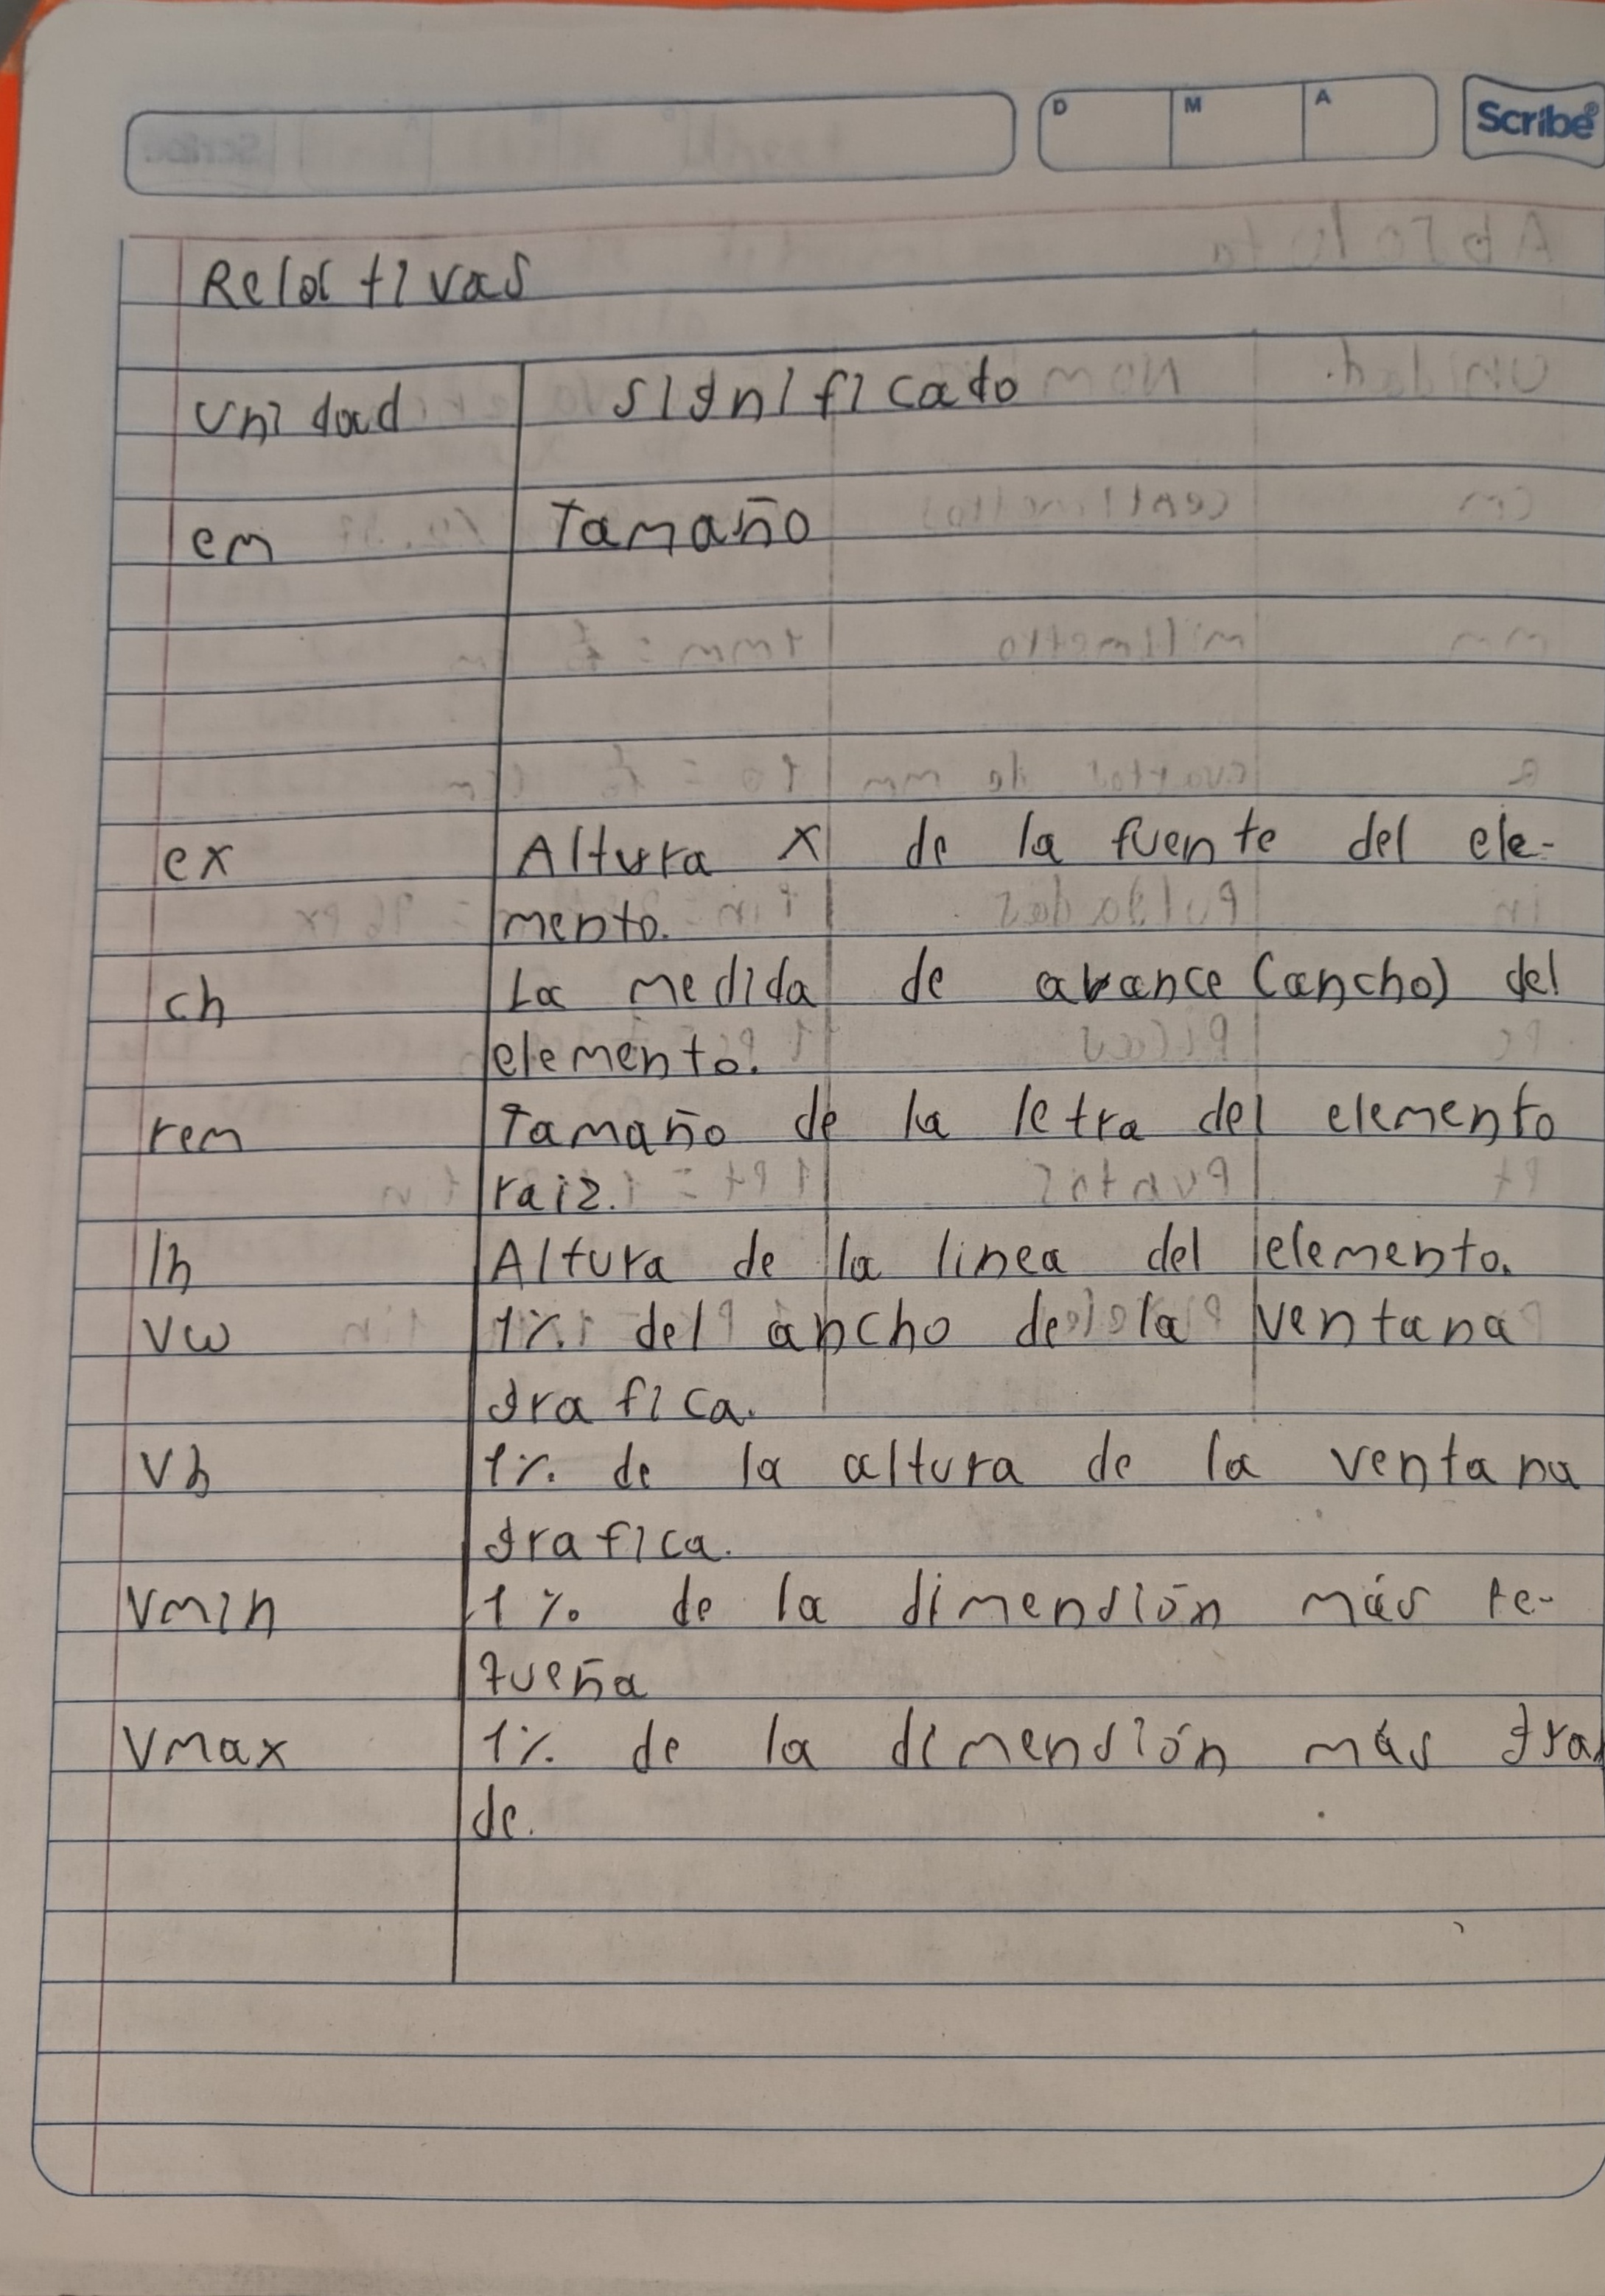 D M A Scribe
Relativas
Unidad Significado
em Tamaño
ex Altura x de la fuente del ele-
mento.
ch La medida de avance (ancho) del
elemento.
rem Tamaño de la letra del elemento
raiz.
lh Altura de la linea del elemento.
vw 1% del ancho de la ventana
grafica.
vh 1% de la altura de la ventana
grafica.
vmin 1% de la dimensión más pe-
queña
vmax 1% de la dimensión más gran
de.